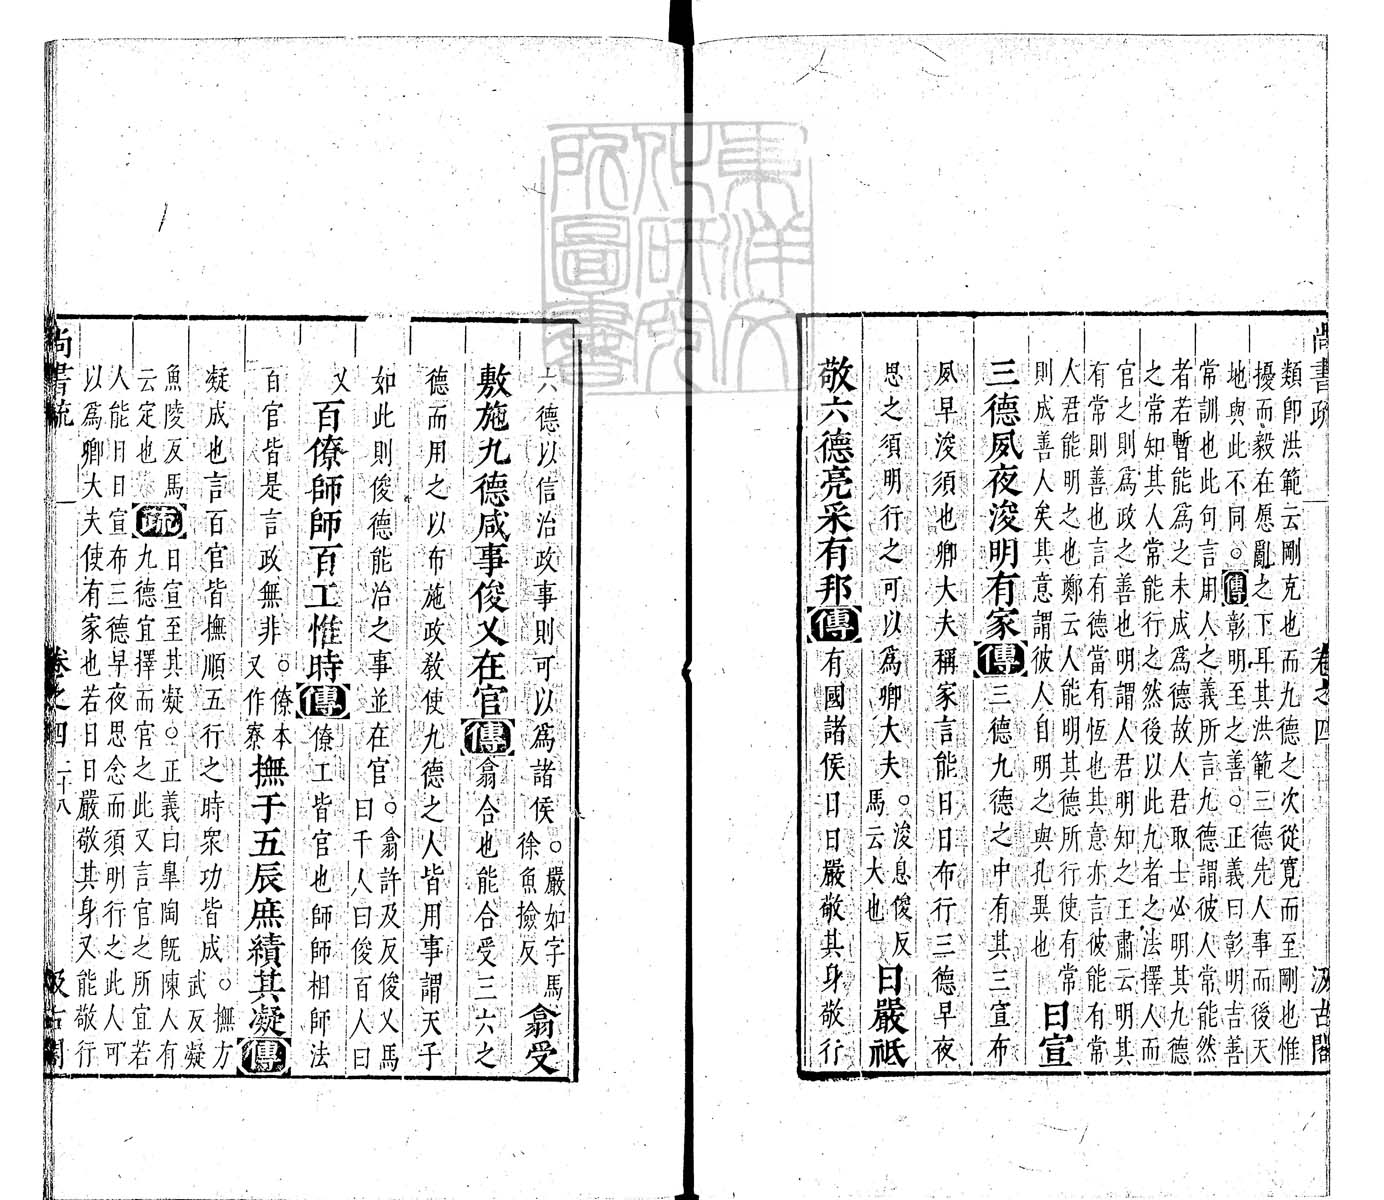 尚書疏 卷之四 二十 汲古閣
類卽洪範云剛克也而九德之次從寬而至剛也惟
擾而毅在愿亂之下耳其洪範三德先人事而後天
地與此不同○傳彰明至之善○正義曰彰明吉善
常訓也此句言用人之義所言九德謂彼人常能然
者若暫能爲之未成爲德故人君取士必明其九德
之常知其人常能行之然後以此九者之法擇人而
官之則爲政之善也明謂人君明知之王肅云明其
有常則善也言有德當有恆也其意亦言彼能有常
人君能明之也鄭云人能明其德所行使有常
則成善人矣其意謂彼人自明之與孔異也 曰宣
三德夙夜浚明有家傳三德九德之中有其三宣布
夙早浚須也卿大夫稱家言能日日布行三德早夜
思之須明行之可以爲卿大夫○浚息俊反
馬云大也 曰嚴祗
敬六德亮采有邦傳有國諸侯日日嚴敬其身敬行
六德以信治政事則可以爲諸侯○嚴如字馬
徐魚撿反 翕受
敷施九德咸事俊乂在官傳翕合也能合受三六之
德而用之以布施政教使九德之人皆用事謂天子
如此則俊德能治之事並在官○翕許及反俊乂馬
曰千人曰俊百人曰
乂 百僚師師百工惟時傳僚工皆官也師師相師法
百官皆是言政無非○僚本
又作寮 撫于五辰庶績其凝傳
凝成也言百官皆撫順五行之時衆功皆成○撫方
武反凝
魚陵反馬
云定也 疏 日宣至其凝○正義曰皐陶旣陳人有
九德宜擇而官之此又言官之所宜若
人能日日宣布三德早夜思念而須明行之此人可
以爲卿大夫使有家也若日日嚴敬其身又能敬行
尚書疏 卷之四 二十八 汲古閣
東洋文
化研究
所圖書